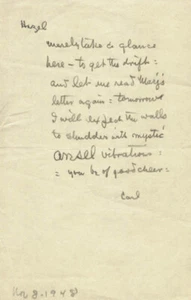 Hazel
merely take a glance
here — to get the drift :
and let me read Mary's
letter again : tomorrow
I will expect the walls
to shudder with mystic
ansel vibrations :
: you be of good cheer :
Carl
8-1948